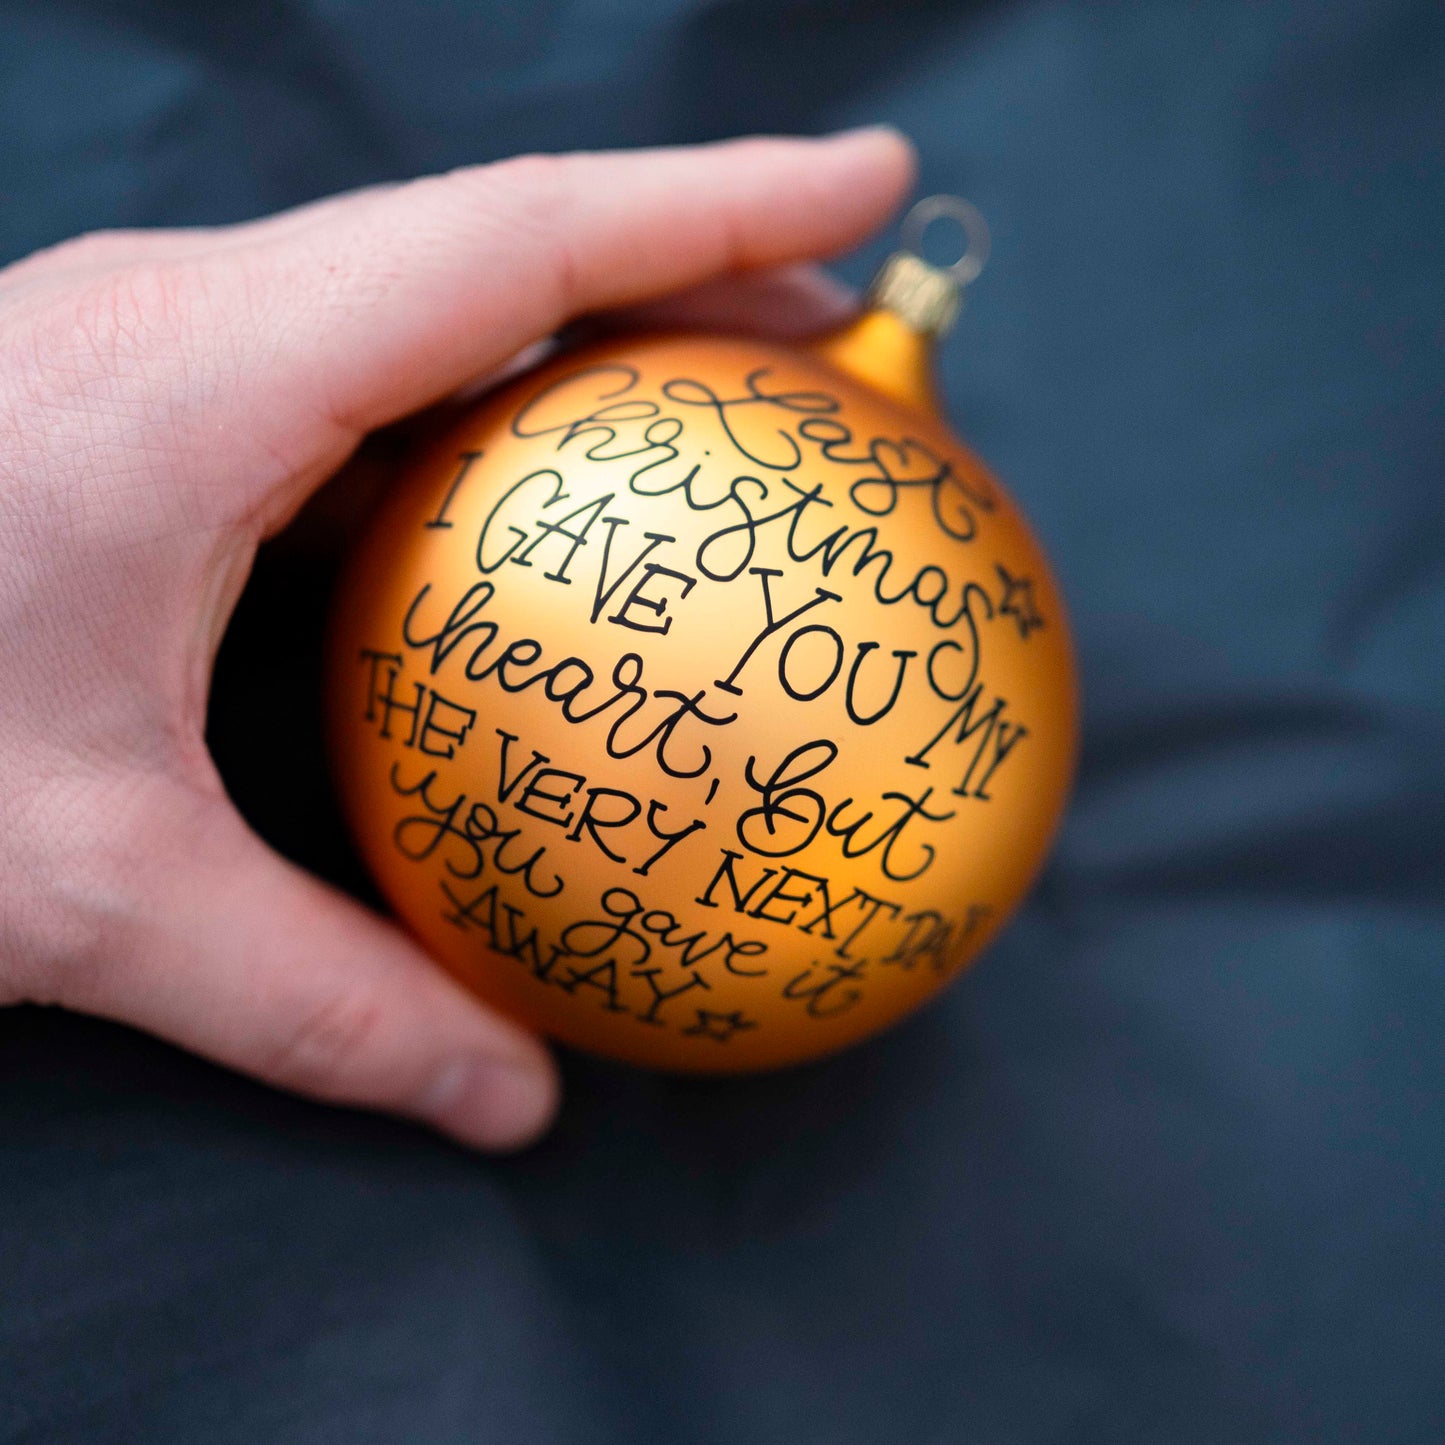 Last
Christmas
I GAVE YOU MY
heart, but
THE VERY NEXT DAY
you gave it
AWAY